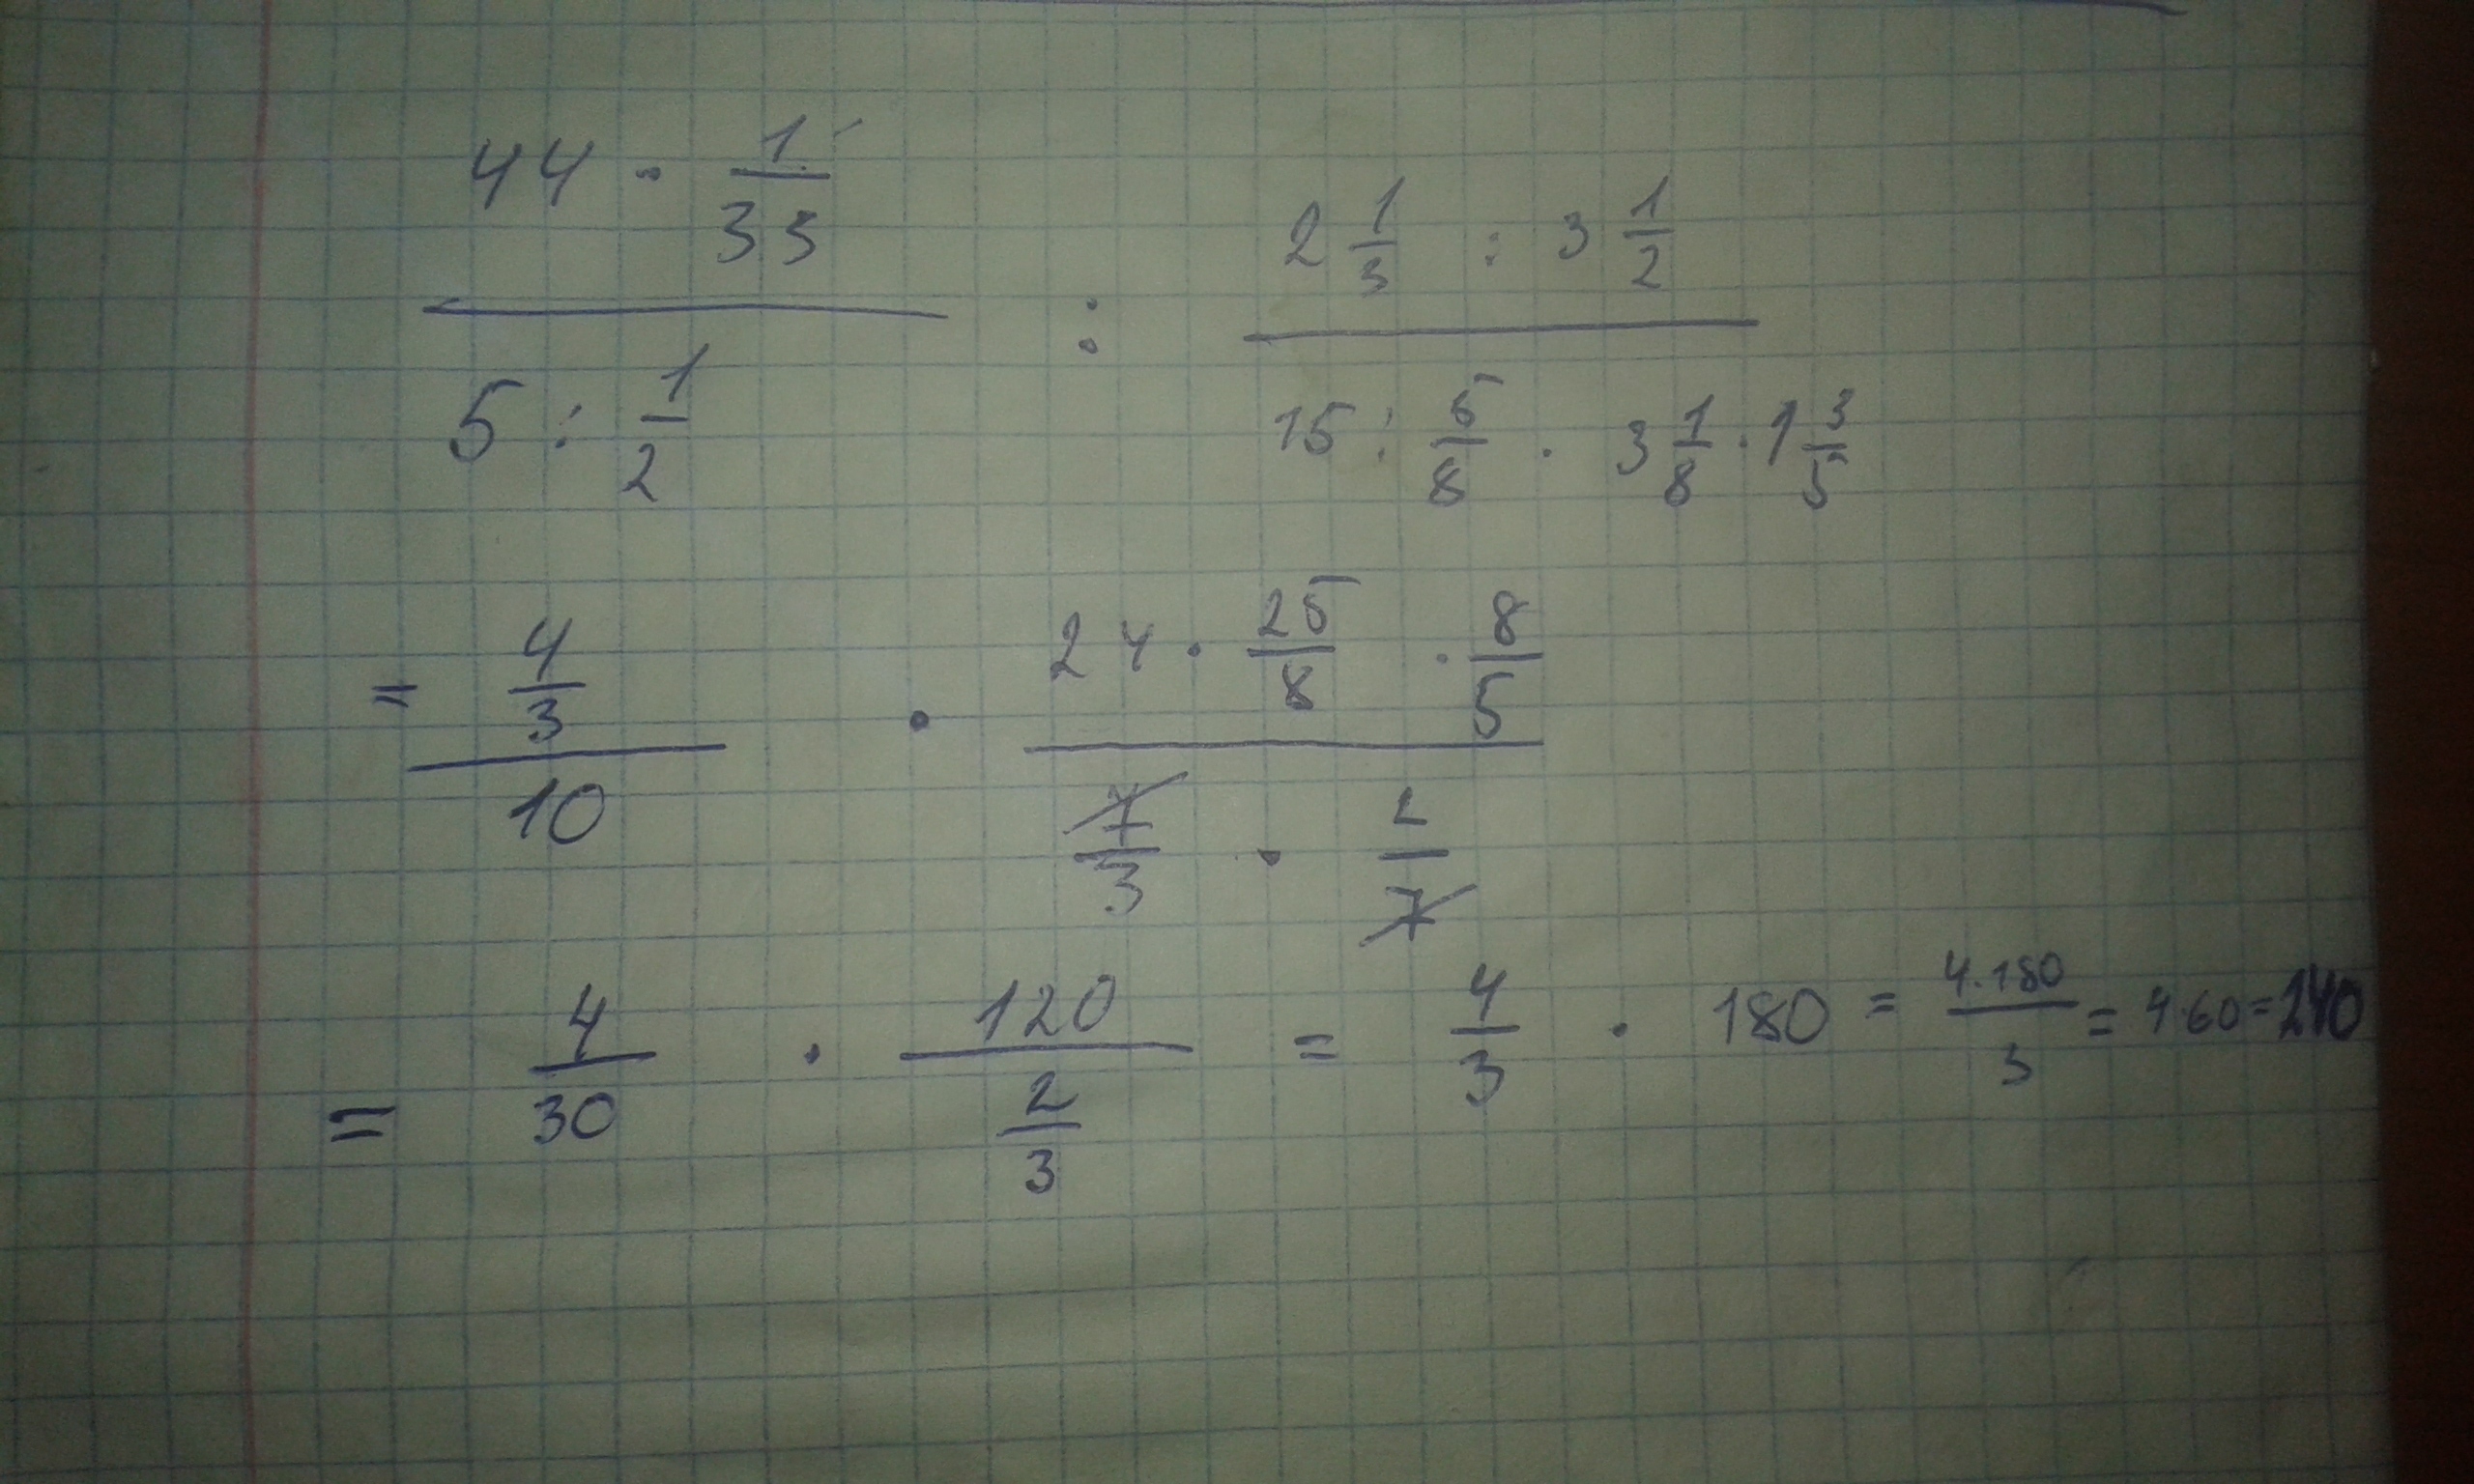 44 · 1/33 / 5 : 1/2 : 2 1/3 : 3 1/2 / 15 : 5/8 · 3 1/8 · 1 3/5
= 4/3 / 10 · 24 · 25/8 · 8/5 / 7/3 · 2/7
= 4/30 · 120 / 2/3 = 4/3 · 180 = 4·180/3 = 4·60=240